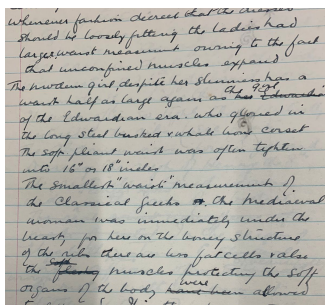 whenever fashion decreed that the dresses
should be loosely fitting the ladies had
larger waist measurment owing to the fact
that unconfined muscles expand
The modern girl, despite her slimness has a
waist half as large again as the girl
of the Edwardian era. who gloried in
the long steel busked & whale bone corset
The soft pliant waist was often tighten
into 16" or 18" inches
The smallest "waist" measurement of
the Classical Greeks or the Mediaeval
woman was immediately under the
breasts, for here on the boney structure
of the ribs there are no fat cells & also
the Soft muscles protecting the Soft
organs of the body were allowed